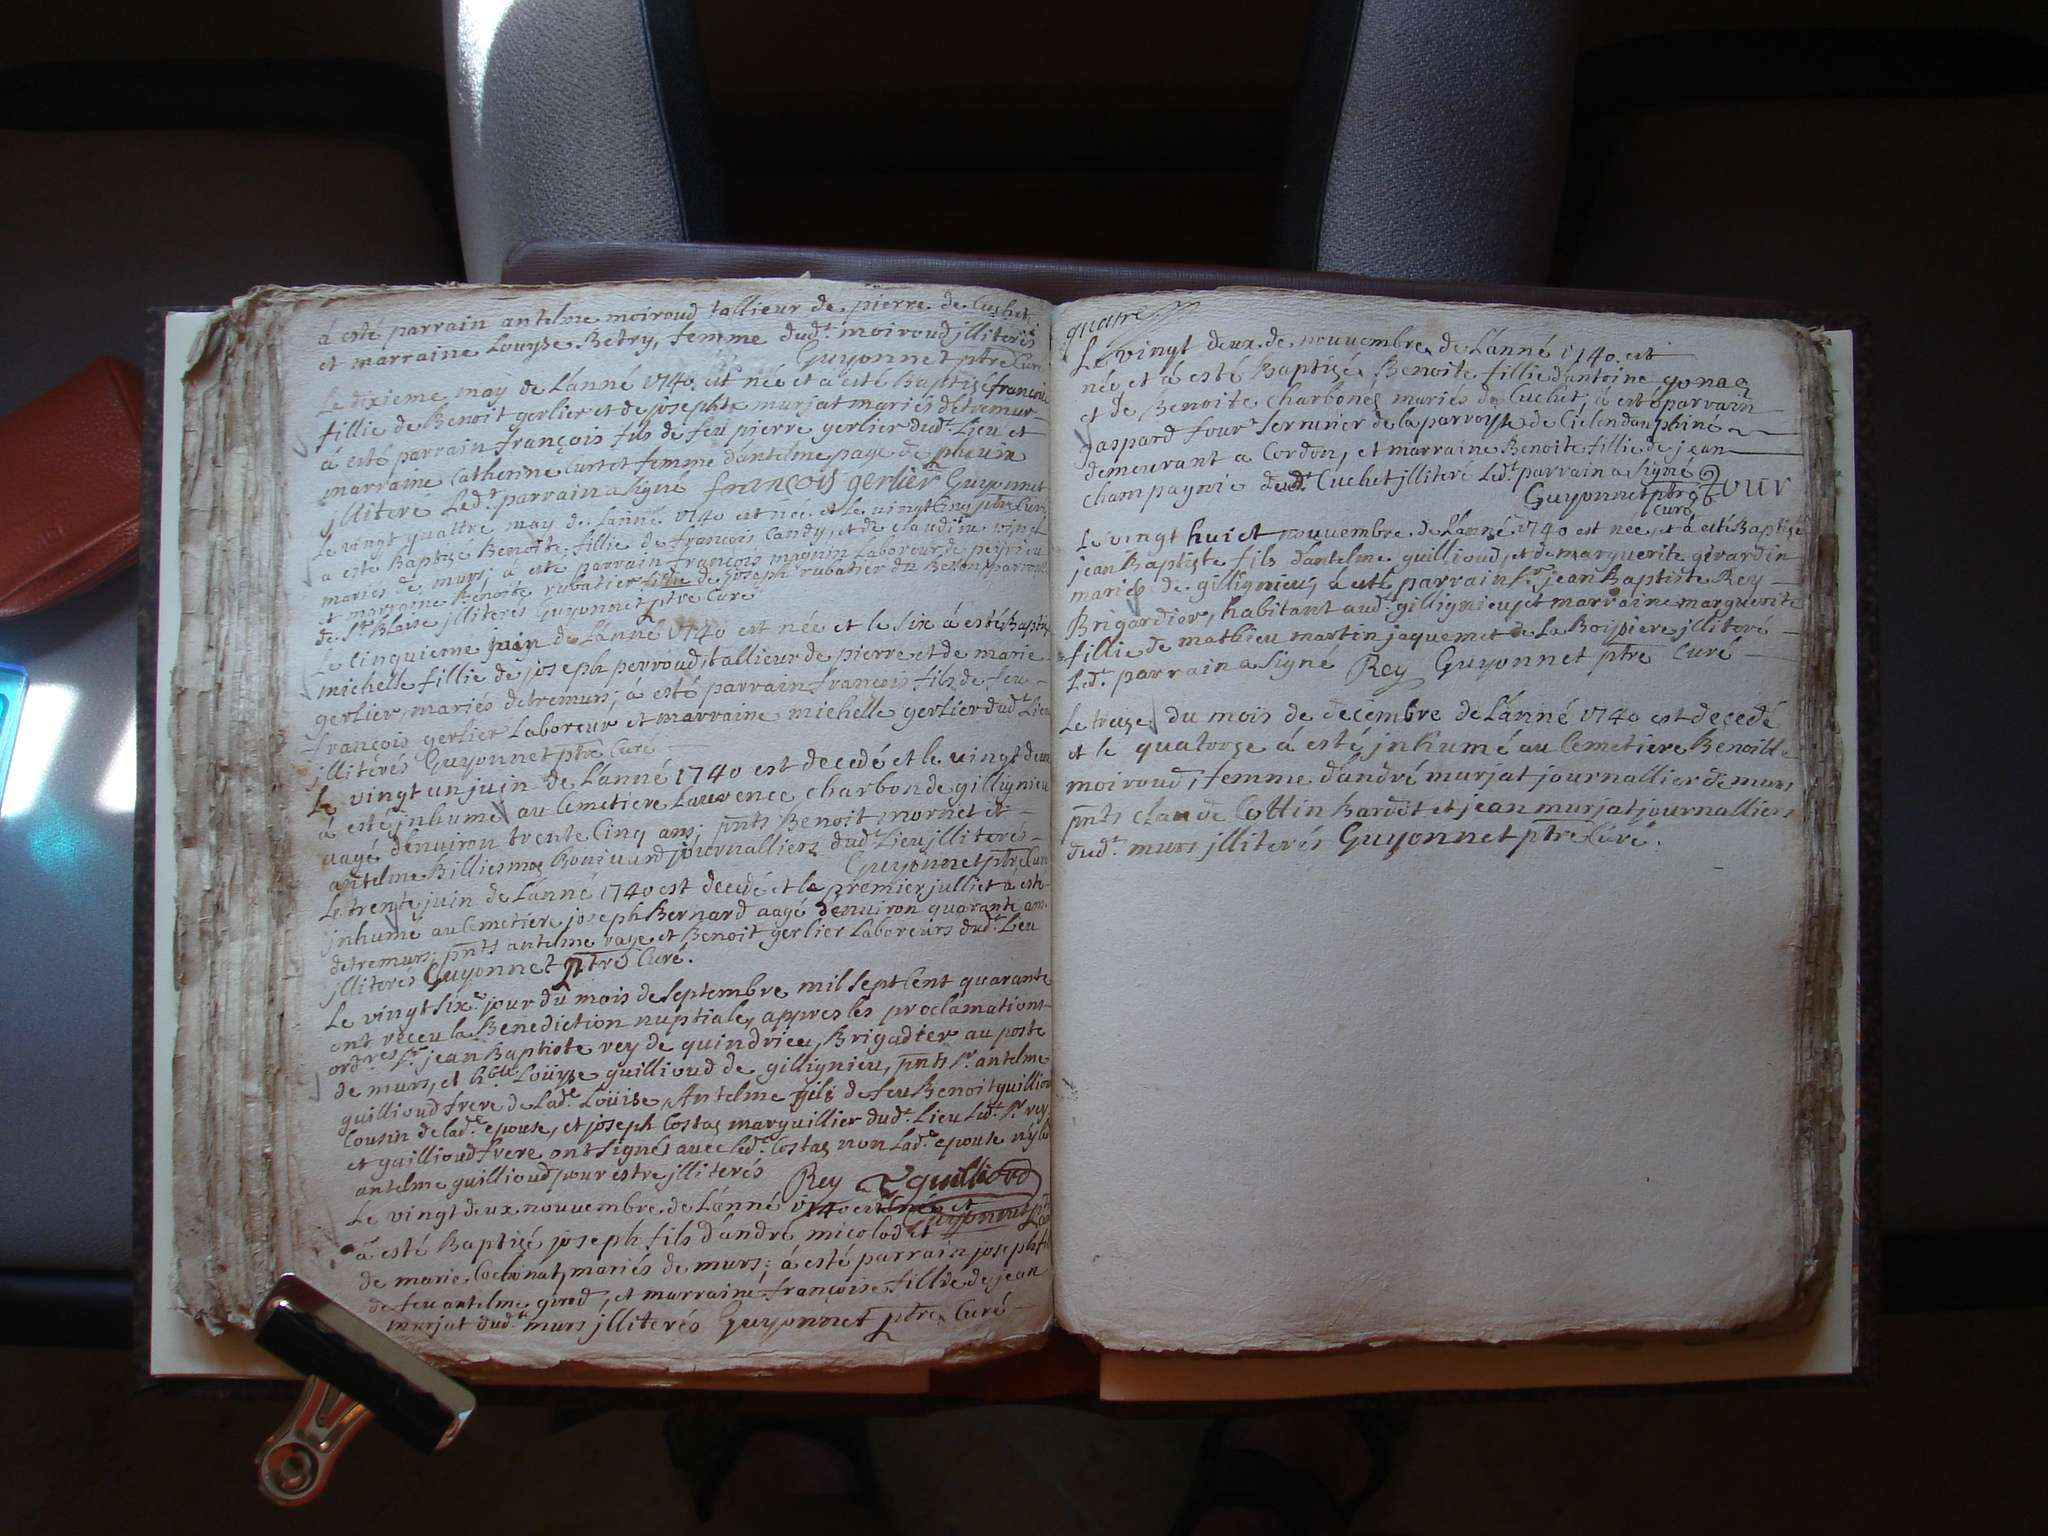 à esté parrain antelme moiroud tallieur de pierre de Cuchet
et marraine Louyse Betry, femme dud.t moiroud jlliterés
Guyonnet ptre Curé
Le dixieme may de L'anné 1740 est née et a esté Baptisé françoise
fillie de Benoit gerlier et de josephte murjat mariés detremurs
à esté parrain françois fils de feu pierre gerlier dud.t Lieu et
marraine Catherine Curtet femme d'antelme page de
jlliteré Led.t parrain a signé françois gerlier Guyonnet
ptre Curé
Le vingt quattre may de L'anné 1740 est née et le vingt Cinq
a esté Baptisé Benoite fillie de françois Candy, et de claudine
mariés de murs; à esté parrain françois magnin Laboreur de peyrieu
et marraine Benoite rubatier fillie de joseph rubatier du parroisse
de S.t Blaise jlliterés Guyonnet ptre Curé
Le Cinquieme juin de L'anné 1740 est née et le six à esté Baptisé
michelle fillie de joseph perroud tallieur de pierre et de marie
gerlier, mariés detremurs; à esté parrain françois fils de feu
françois gerlier Laboreur et marraine michelle gerlier dud.t Lieu
jlliterés Guyonnet ptre Curé
Le vingt un juin de L'anné 1740 est decedé et le vingt deux
à esté jnhumé au Cemetiere Laurence charbon de gillignieu
aagé d'enuiron trente Cinq ans; pnts Benoit mornet et
antelme Billiemaz Boniuard journalliers dud.t Lieu jlliterés
Guyonnet ptre Curé
Le trente juin de L'anné 1740 est decedé et le premier julliet à esté
jnhumé au Cemetiere joseph Bernard aagé d'enuiron quarante ans
detremurs; pnts antelme page et Benoit gerlier Laboreurs dud.t Lieu
jlliterés Guyonnet ptre Curé.
Le vingt six.e jour du mois de septembre mil sept Cent quarante
ont receu la Benediction nuptiale, appres les proclamations
ord.res s.r jean Baptiste rey de quindrieu, Brigadier au poste
de murs, et h.ble Loüyse guillioud de gillignieu, pnts s.r antelme
guillioud frere de Lad.e Loüise, Antelme fils de feu Benoit guillioud
Cousin de lad.e epouse, et joseph Costaz marguillier dud.t Lieu Led.t s.r rey
et guillioud frere ont signés avec led.t Costaz non Lad.e epouse ny led
antelme guillioud pour estre jlliterés Rey guilliovd
Guyonnet ptre
Le vingt deux nouuembre de L'anné 1740 est né et
à esté Baptisé joseph fils d'andré micolod et
de marie Cochonat, mariés de murs; à esté parrain joseph fils
de feu antelme girod, et marraine françoise fillie de jean
murjat dud.t murs jlliterés Guyonnet ptre Curé
quatre
Le vingt deux de nouuembre de L'anné 1740 est
née et à esté Baptisé Benoite fillie d'antoine gonaz
et de Benoite Charbonés mariés de Cuchet; à esté parrain
gaspard four serrurier de la parroisse de Ciel en dauphiné
demeurant a Cordon, et marraine Benoite fillie de jean
champagnie dud.t Cuchet jlliteré Led.t parrain a signé
Guyonnet ptre Curé four
Le vingt huict nouuembre de L'anné 1740 est née et à esté Baptisé
jean Baptiste fils d'antelme guillioud, et de marguerite girardin
mariés de gillignieu; à esté parrain s.r jean Baptiste Rey
Brigardier, habitant aud.t gillignieu, et marraine marguerite
fillie de mathieu martin jaquemet de la Boissiere jlliteré
Led.t parrain a signé Rey Guyonnet ptre Curé
Le treize du mois de decembre de L'anné 1740 est decedé
et le quatorze à esté jnhumé au Cemetiere Benoitte
moiroud, femme d'andré murjat journallier de murs
pnts claude Cottin Bardet et jean murjat journalliers
dud.t murs jlliterés Guyonnet ptre Curé.